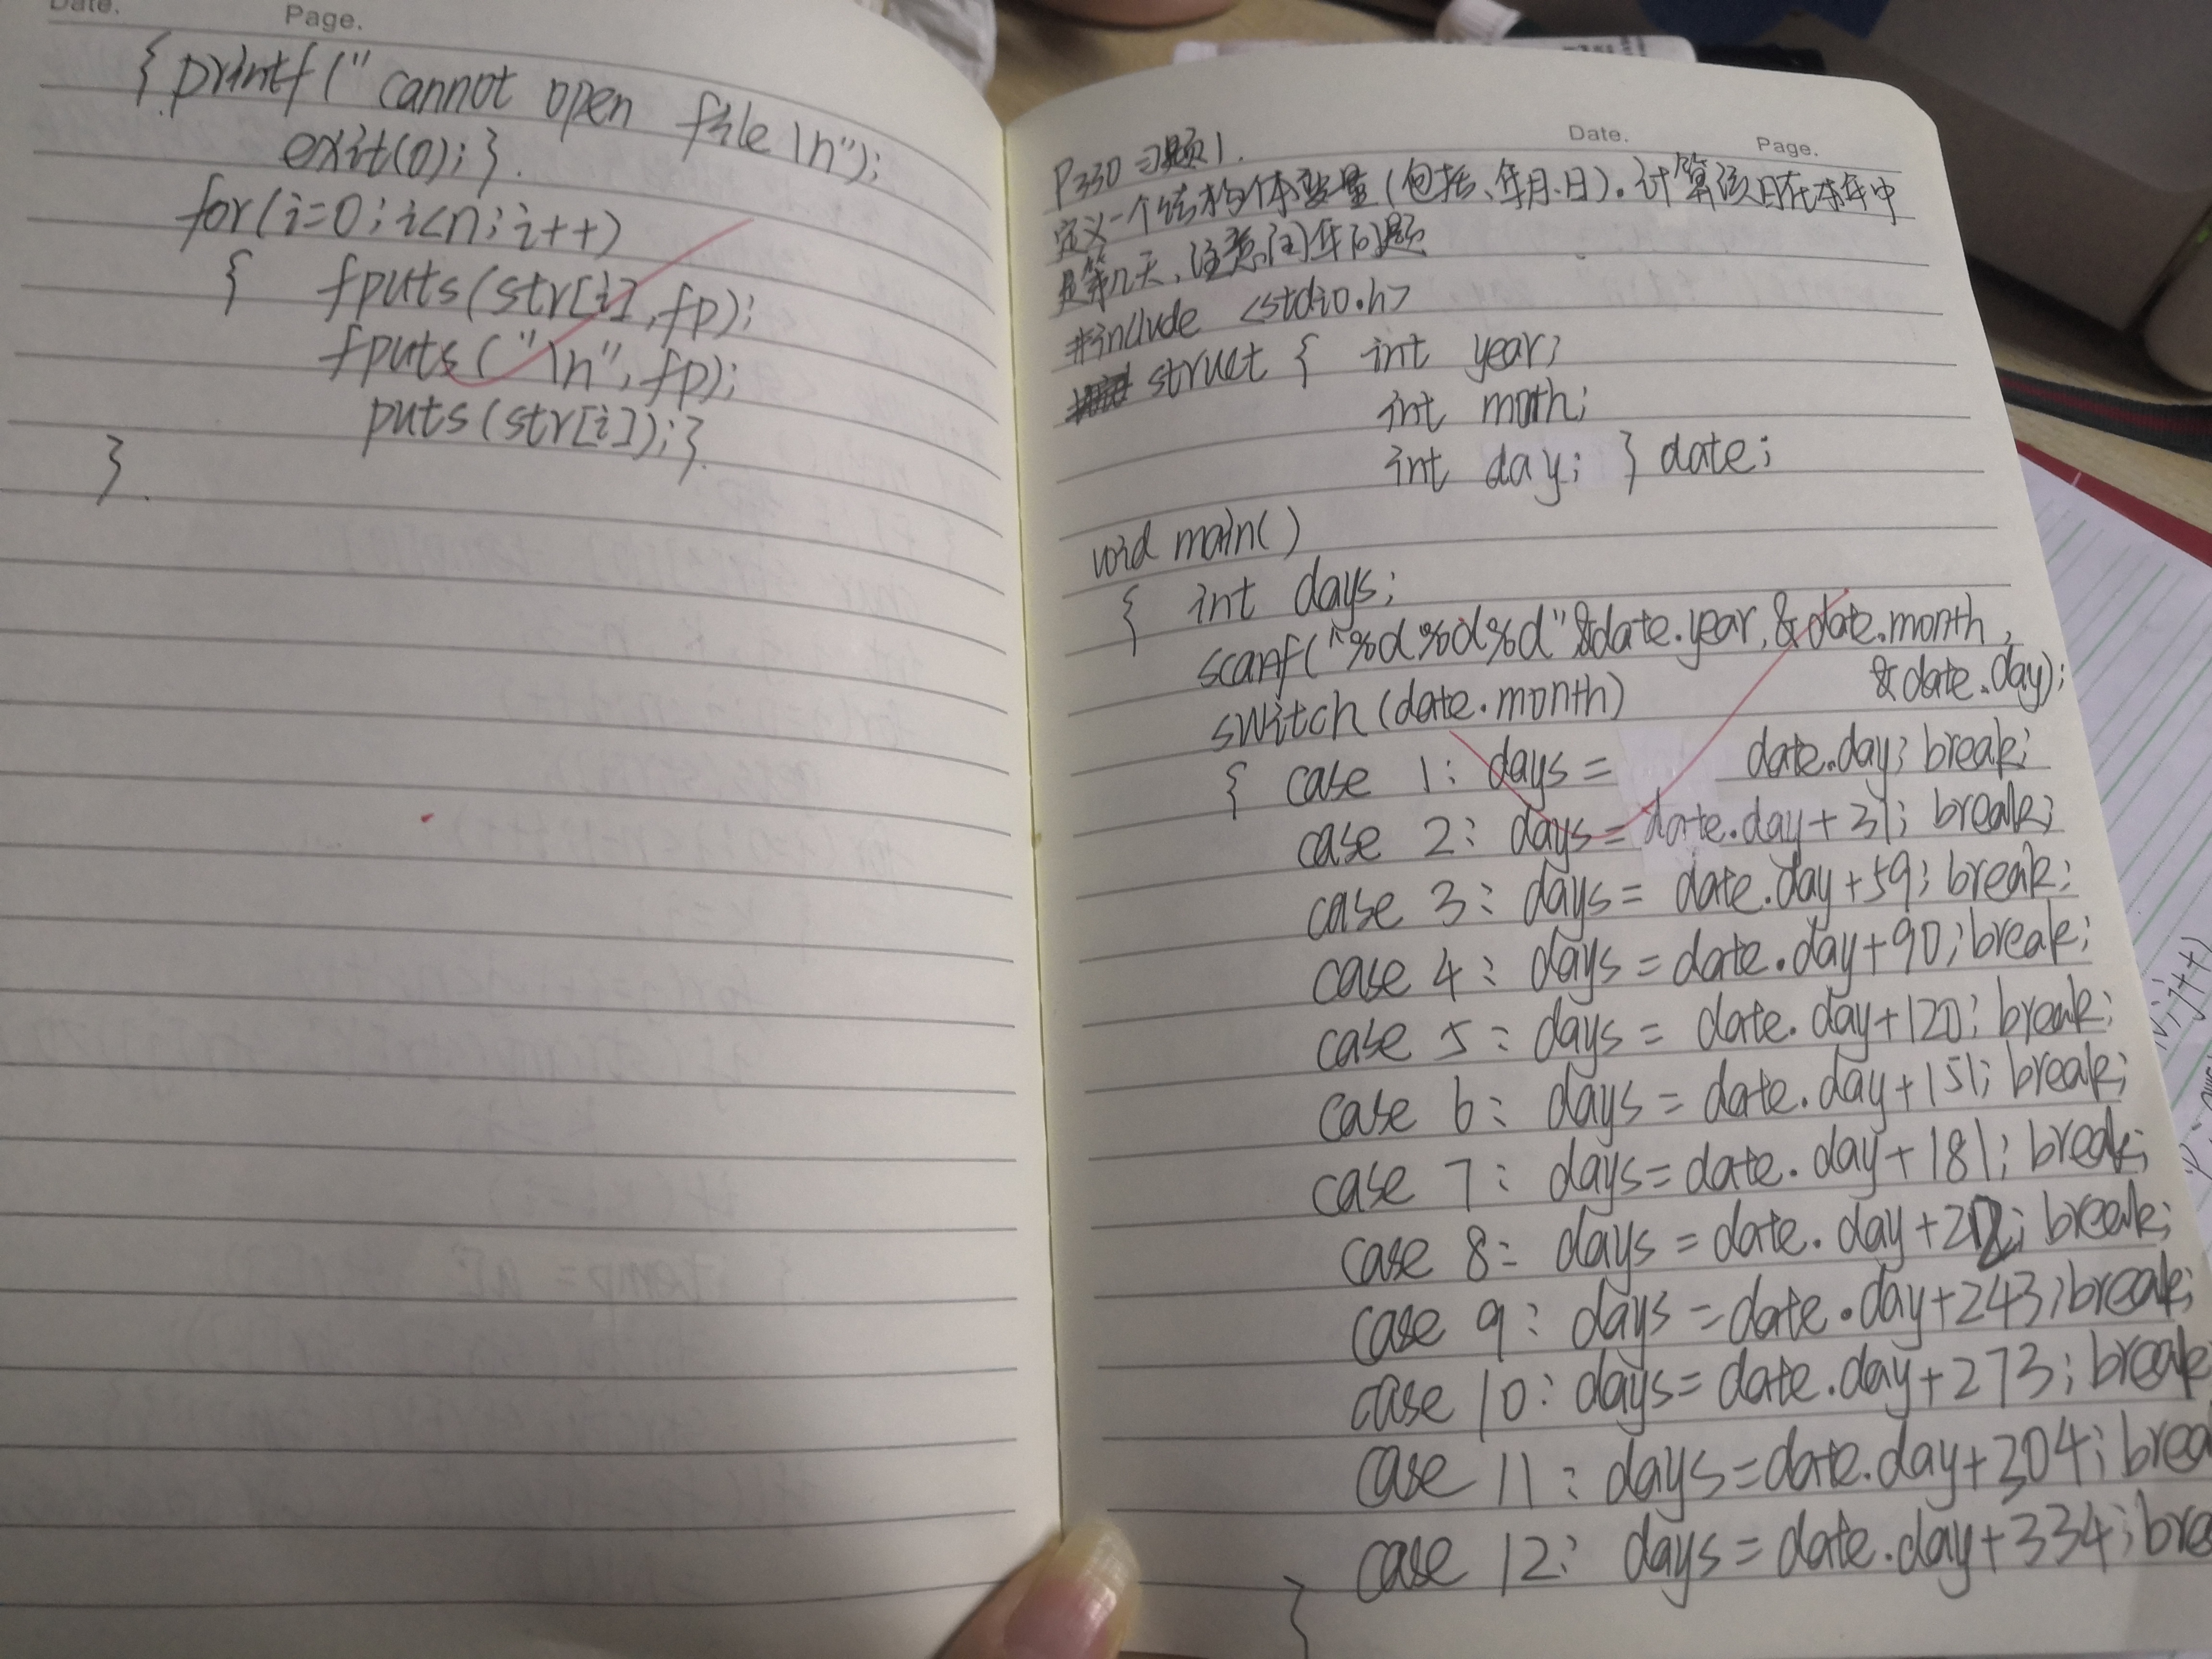 Date.
Page.
{ printf(" cannot open file \n");
exit(0); }.
for(i=0; i<n; i++)
{ fputs(str[i], fp);
fputs("\n", fp);
puts(str[i]); }.
}.
Date.
Page.
P330 习题1.
定义一个结构体变量(包括、年月、日). 计算该日在本年中
是第几天、注意闰年问题
#include <stdio.h>
struct { int year;
int moth;
int day; } date;
void main()
{ int days;
scanf("%d%d%d"&date.year, &date.month,
&date.day);
switch (date.month)
{ case 1: days = date.day; break;
case 2: days = date.day+31; break;
case 3: days = date.day+59; break;
case 4: days = date.day+90; break;
case 5: days = date.day+120; break;
case 6: days = date.day+151; break;
case 7: days = date.day+181; break;
case 8: days = date.day+212; break;
case 9: days = date.day+243; break;
case 10: days = date.day+273; break
case 11: days = date.day+304; brea
case 12: days = date.day+334; bre
}